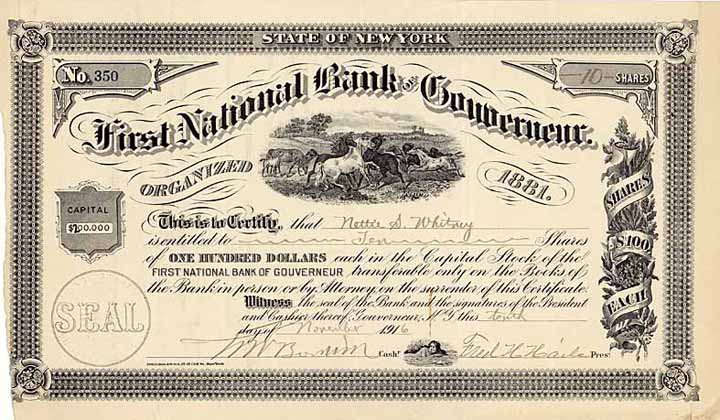 STATE OF NEW YORK
No. 350
10 SHARES
First National Bank of Gouverneur.
ORGANIZED 1881.
CAPITAL
$100.000
This is to Certify, that Nettie S. Whitney
is entitled to Ten Shares
of ONE HUNDRED DOLLARS each in the Capital Stock of the
FIRST NATIONAL BANK OF GOUVERNEUR transferable only on the Books of
the Bank in person or by Attorney on the surrender of this Certificate.
Witness the seal of the Bank and the signatures of the President
and Cashier thereof, Gouverneur, N.Y. this tenth
day of November 1916
SEAL
SHARES
$100
EACH
Cashr
Fred H. Pres